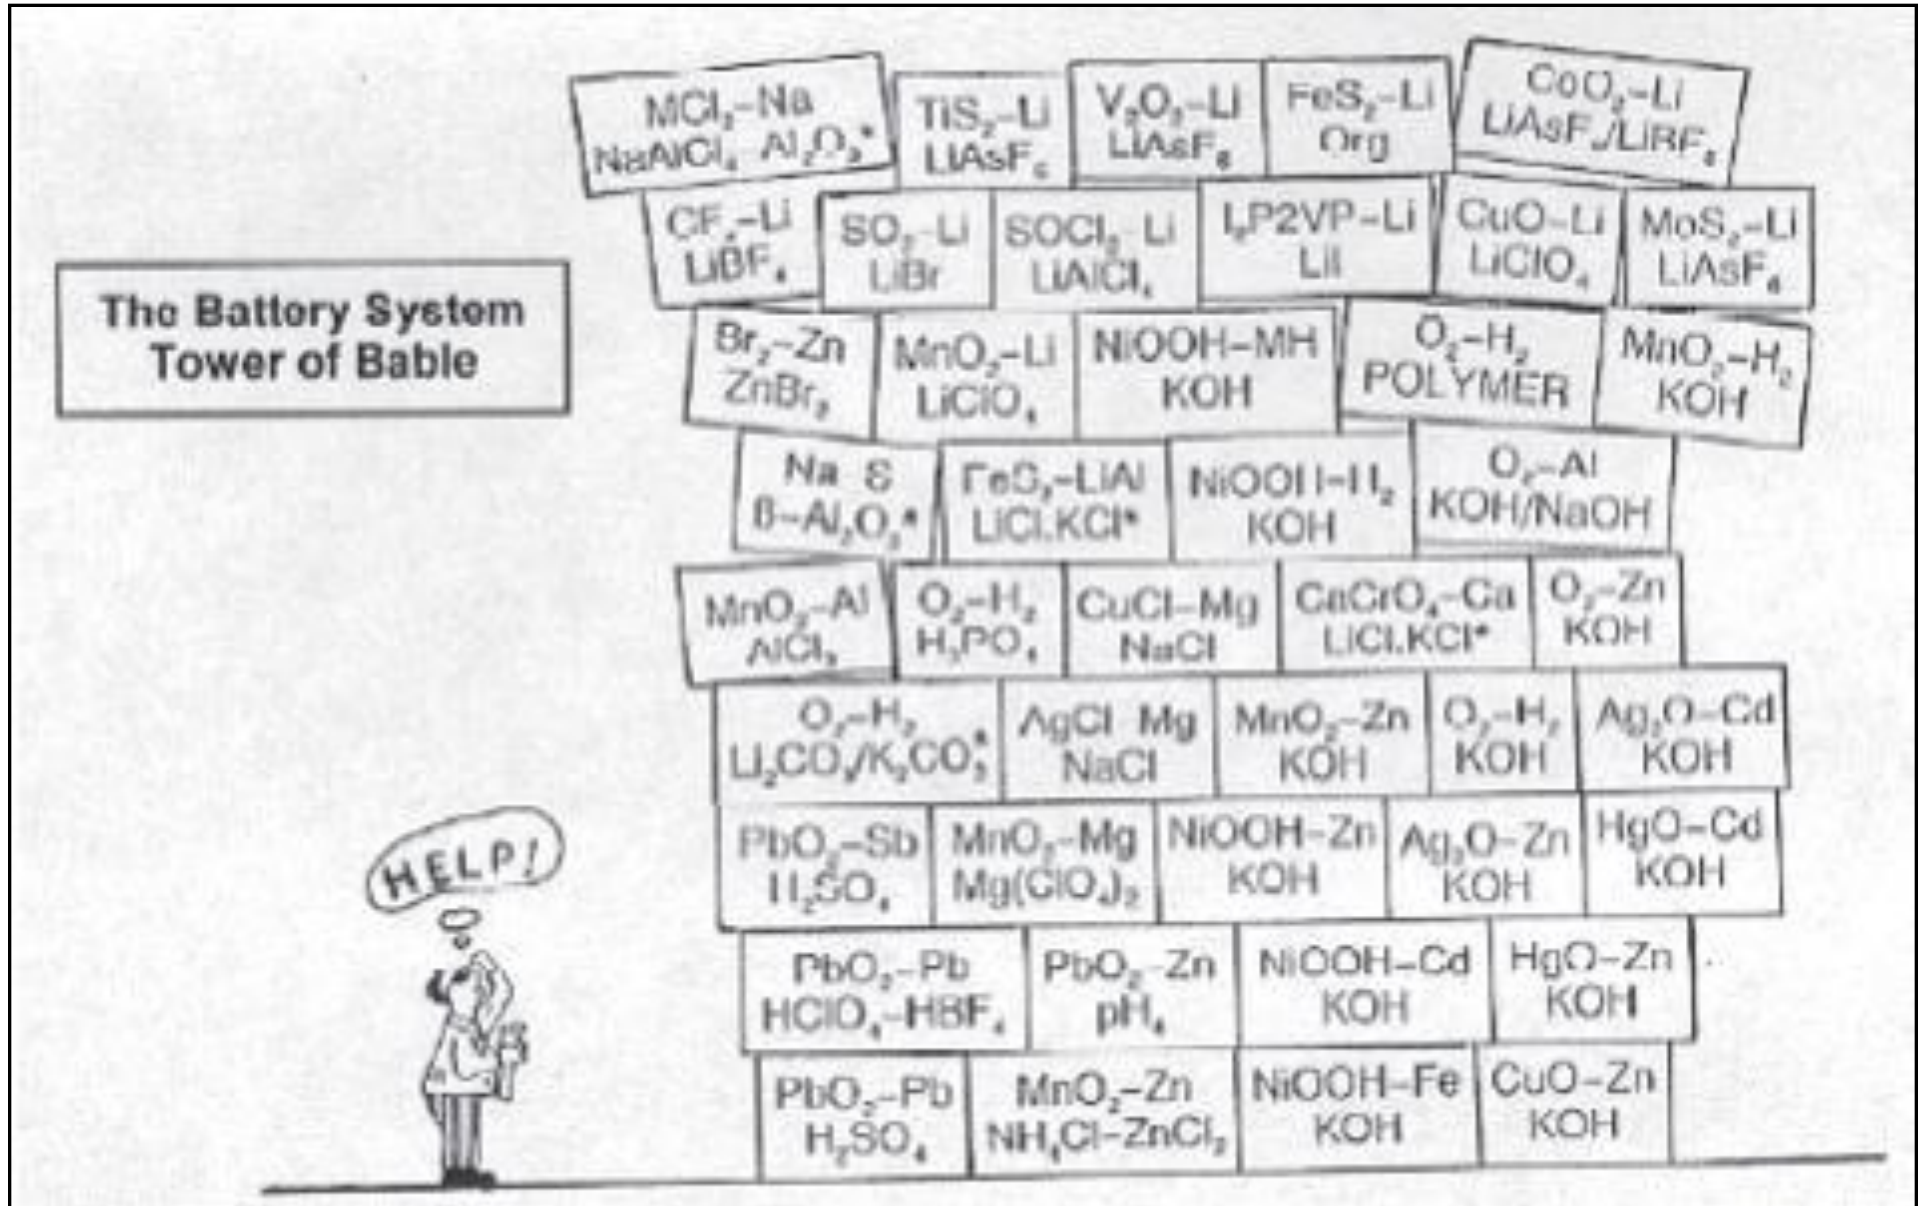 The Battery System
Tower of Bable
MCl₂–Na
NaAlCl₄ Al₂O₃*
TiS₂–Li
LiAsF₆
V₂O₅–Li
LiAsF₆
FeS₂–Li
Org
CoO₂–Li
LiAsF₆/LiBF₆
CFₓ–Li
LiBF₄
SO₂–Li
LiBr
SOCl₂–Li
LiAlCl₄
I₂P2VP–Li
LiI
CuO–Li
LiClO₄
MoS₂–Li
LiAsF₆
Br₂–Zn
ZnBr₂
MnO₂–Li
LiClO₄
NiOOH–MH
KOH
O₂–H₂
POLYMER
MnO₂–H₂
KOH
Na S
β–Al₂O₃*
FeS₂–LiAl
LiCl.KCl*
NiOOH–H₂
KOH
O₂–Al
KOH/NaOH
MnO₂–Al
AlCl₃
O₂–H₂
H₃PO₄
CuCl–Mg
NaCl
CaCrO₄–Ca
LiCl.KCl*
O₂–Zn
KOH
O₂–H₂
Li₂CO₃/K₂CO₃*
AgCl Mg
NaCl
MnO₂–Zn
KOH
O₂–H₂
KOH
Ag₂O–Cd
KOH
PbO₂–Sb
H₂SO₄
MnO₂–Mg
Mg(ClO₄)₂
NiOOH–Zn
KOH
Ag₂O–Zn
KOH
HgO–Cd
KOH
HELP!
PbO₂–Pb
HClO₄–HBF₄
PbO₂–Zn
pH₄
NiOOH–Cd
KOH
HgO–Zn
KOH
PbO₂–Pb
H₂SO₄
MnO₂–Zn
NH₄Cl–ZnCl₂
NiOOH–Fe
KOH
CuO–Zn
KOH